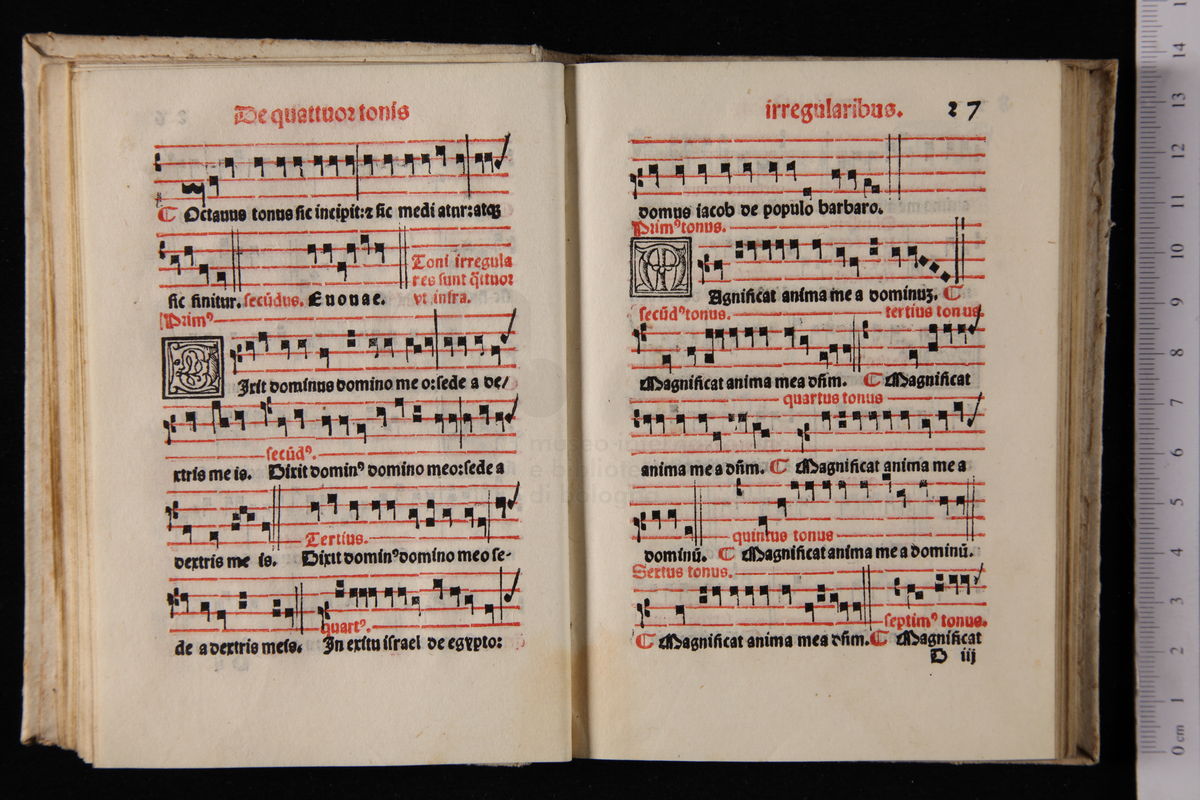 De quattuor tonis
¶ Octauus tonus sic incipit: ⁊ sic mediatur: atqꝫ
sic finitur. secūdus. Euouae.
Toni irregula
res sunt q̄ttuor
vt infra.
Primꝰ
Dixit dominus domino meo: sede a de/
xtris meis. Dixit dominꝰ domino meo: sede a
secūdꝰ.
dextris meis. Dixit dominꝰ domino meo se-
Tertius.
de a dextris meis. In exitu israel de egypto:
quartꝰ.
irregularibus. 27
domus iacob de populo barbaro.
Primꝰ tonus.
Magnificat anima mea dominuꝫ. ¶
secūdꝰ tonus. tertius tonus
Magnificat anima mea dn̄m. ¶ Magnificat
quartus tonus
anima mea dn̄m. ¶ Magnificat anima mea
quintus tonus
dominū. ¶ Magnificat anima mea dominū.
Sextus tonus.
septimꝰ tonus.
¶ Magnificat anima mea dn̄m. ¶ Magnificat
D iij
museo
e biblioteca
di bologna
0 cm 1 2 3 4 5 6 7 8 9 10 11 12 13 14